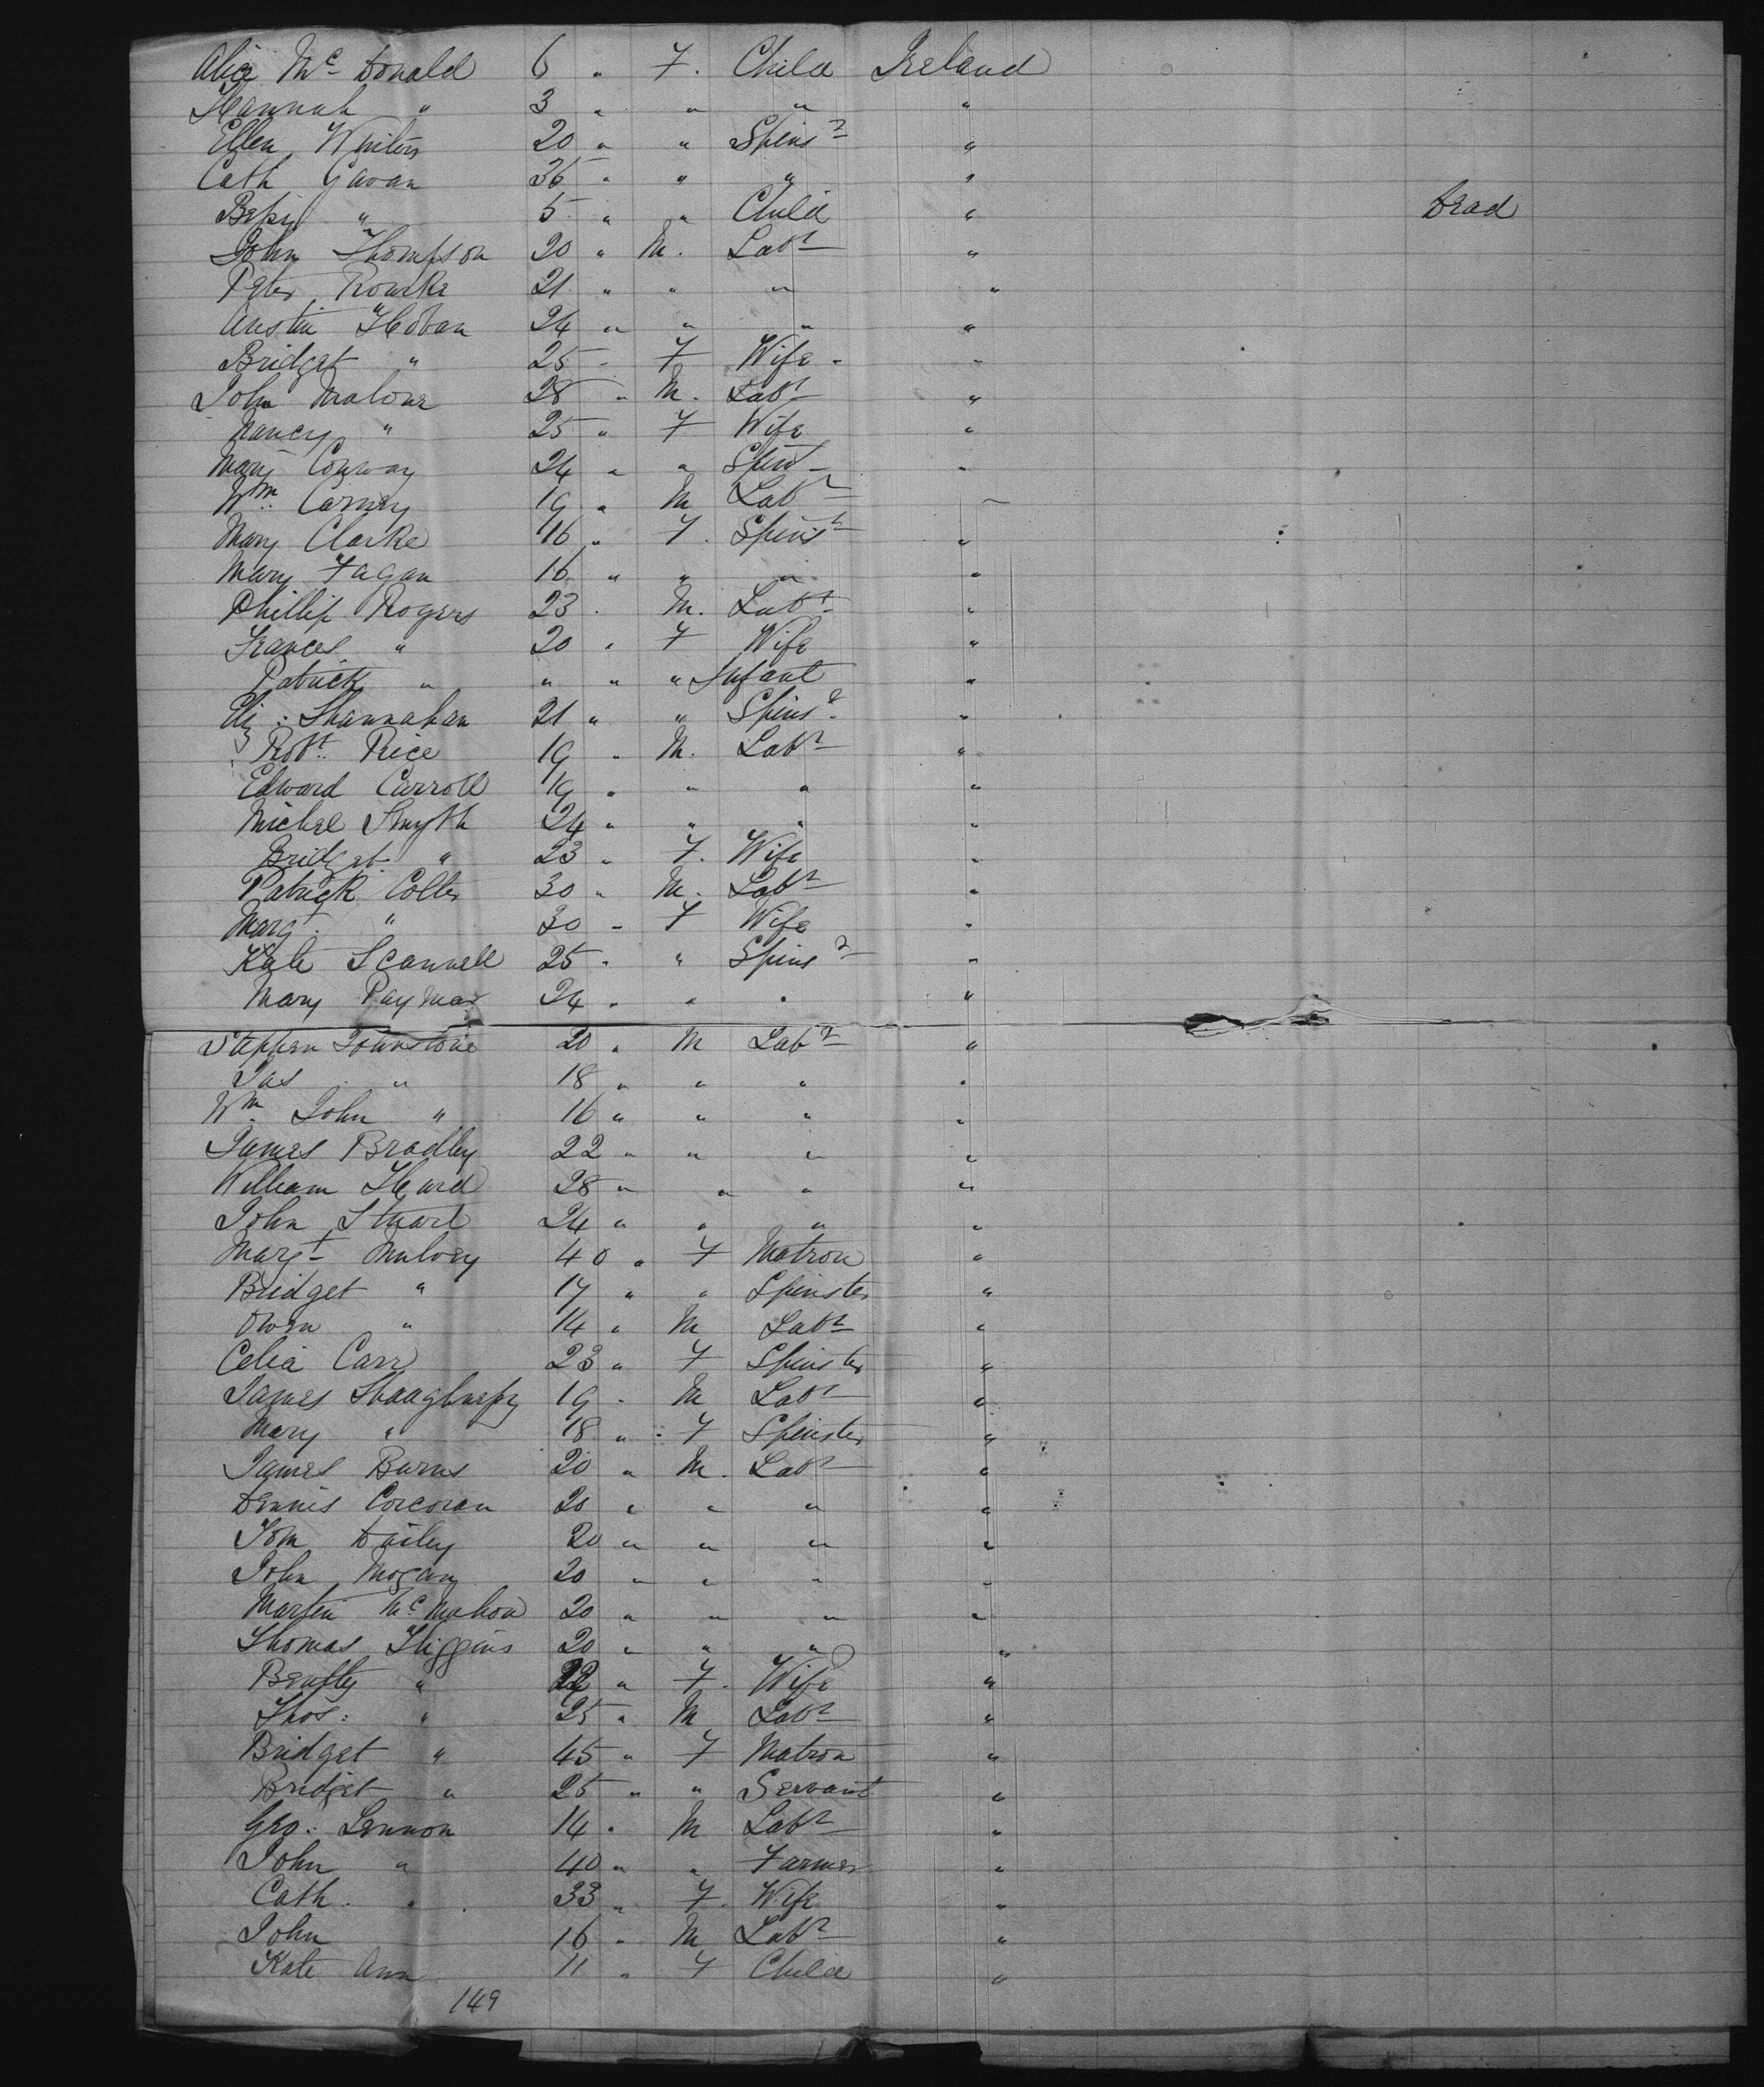 Alice McDonald 6 " F. Child Ireland
Hannah " 3 " " " "
Ellen 20 " " Spinsr "
Cath Gavan 36 " " " "
Bessy " 5 " " Child " Dead
John Thompson 20 " M. Labr "
Peter Rourke 21 " " " "
Austin Hoban 24 " " " "
Bridget " 25 " F Wife "
John Malone 28 " M. Labr "
Nancy " 25 " F Wife "
Mary Conway 24 " " Spinr "
Wm: Carney 19 " M Labr "
Mary Clarke 16 " F. Spinsr "
Mary Fagan 16 " " " "
Phillip Rogers 23 " M. Labr "
Frances " 20 " F Wife "
Patrick " " " " Infant "
Eliz: Shannahan 21 " " Spinsr "
Robt: Rice 19 " M. Labr "
Edward Carroll 19 " " " "
Michael Smyth 24 " " " "
Bridget " 23 " F. Wife "
Patrick Colter 30 " M. Labr "
Margt " 30 " F Wife "
Kate Scannell 25 " " Spinsr "
Mary 24 " " " "
Stephen Johnstone 20 " M Labr "
Jas " 18 " " " "
Wm John " 16 " " " "
James Bradley 22 " " " "
William Hurd 28 " " " "
John Stuart 24 " " " "
Margt Mulvey 40 " F Matron "
Bridget " 17 " " Spinster "
Owen " 14 " M Labr "
Celia Carr 23 " F Spinster "
James Shaughnessy 19 " M Labr "
Mary " 18 " F Spinster "
James Burns 20 " M. Labr "
Dennis Corcoran 20 " " " "
Tom Dailey 20 " " " "
John Mogan 20 " " " "
Martin McMahon 20 " " " "
Thomas Higgins 20 " " " "
" 22 " F. Wife "
Thos: " 25 " M Labr "
Bridget " 45 " F Matron "
Bridget " 25 " " Servant "
Geo: Lennon 14 " M Labr "
John " 40 " " Farmer "
Cath. " 33 " F. Wife "
John 16 " M Labr "
Kate Ann 11 " F Child "
149